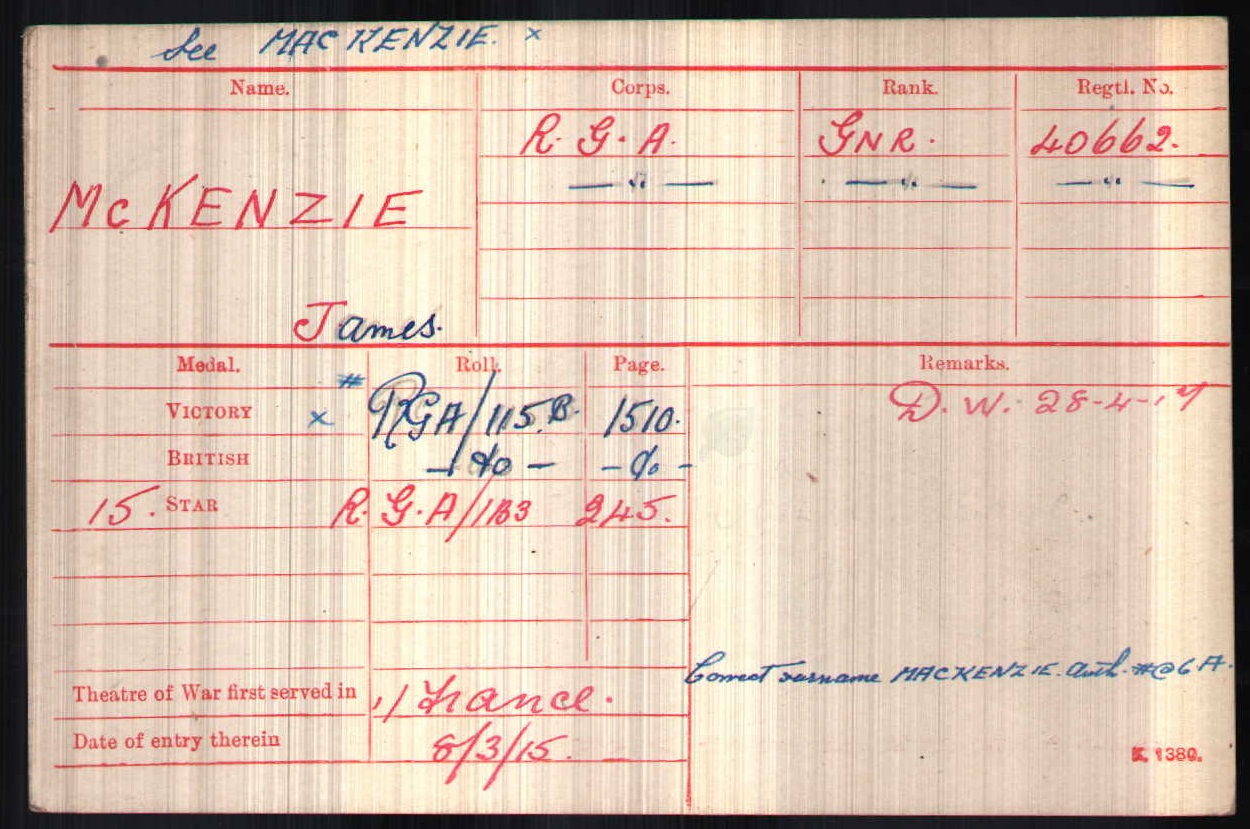 See MACKENZIE. x
Name. Corps. Rank. Regtl. No.
R. G. A. GNR. 40662.
— " — — " — — " —
McKENZIE
James.
Medal. Roll. Page. Remarks.
#
VICTORY x RGA/115.B. 1510. D. W. 28-4-17
BRITISH — do — - do -
15. STAR R. G. A/1B3 245.
Correct surname MACKENZIE. Auth. #@6A.
Theatre of War first served in 1/ France.
Date of entry therein 8/3/15.
K. 1380.